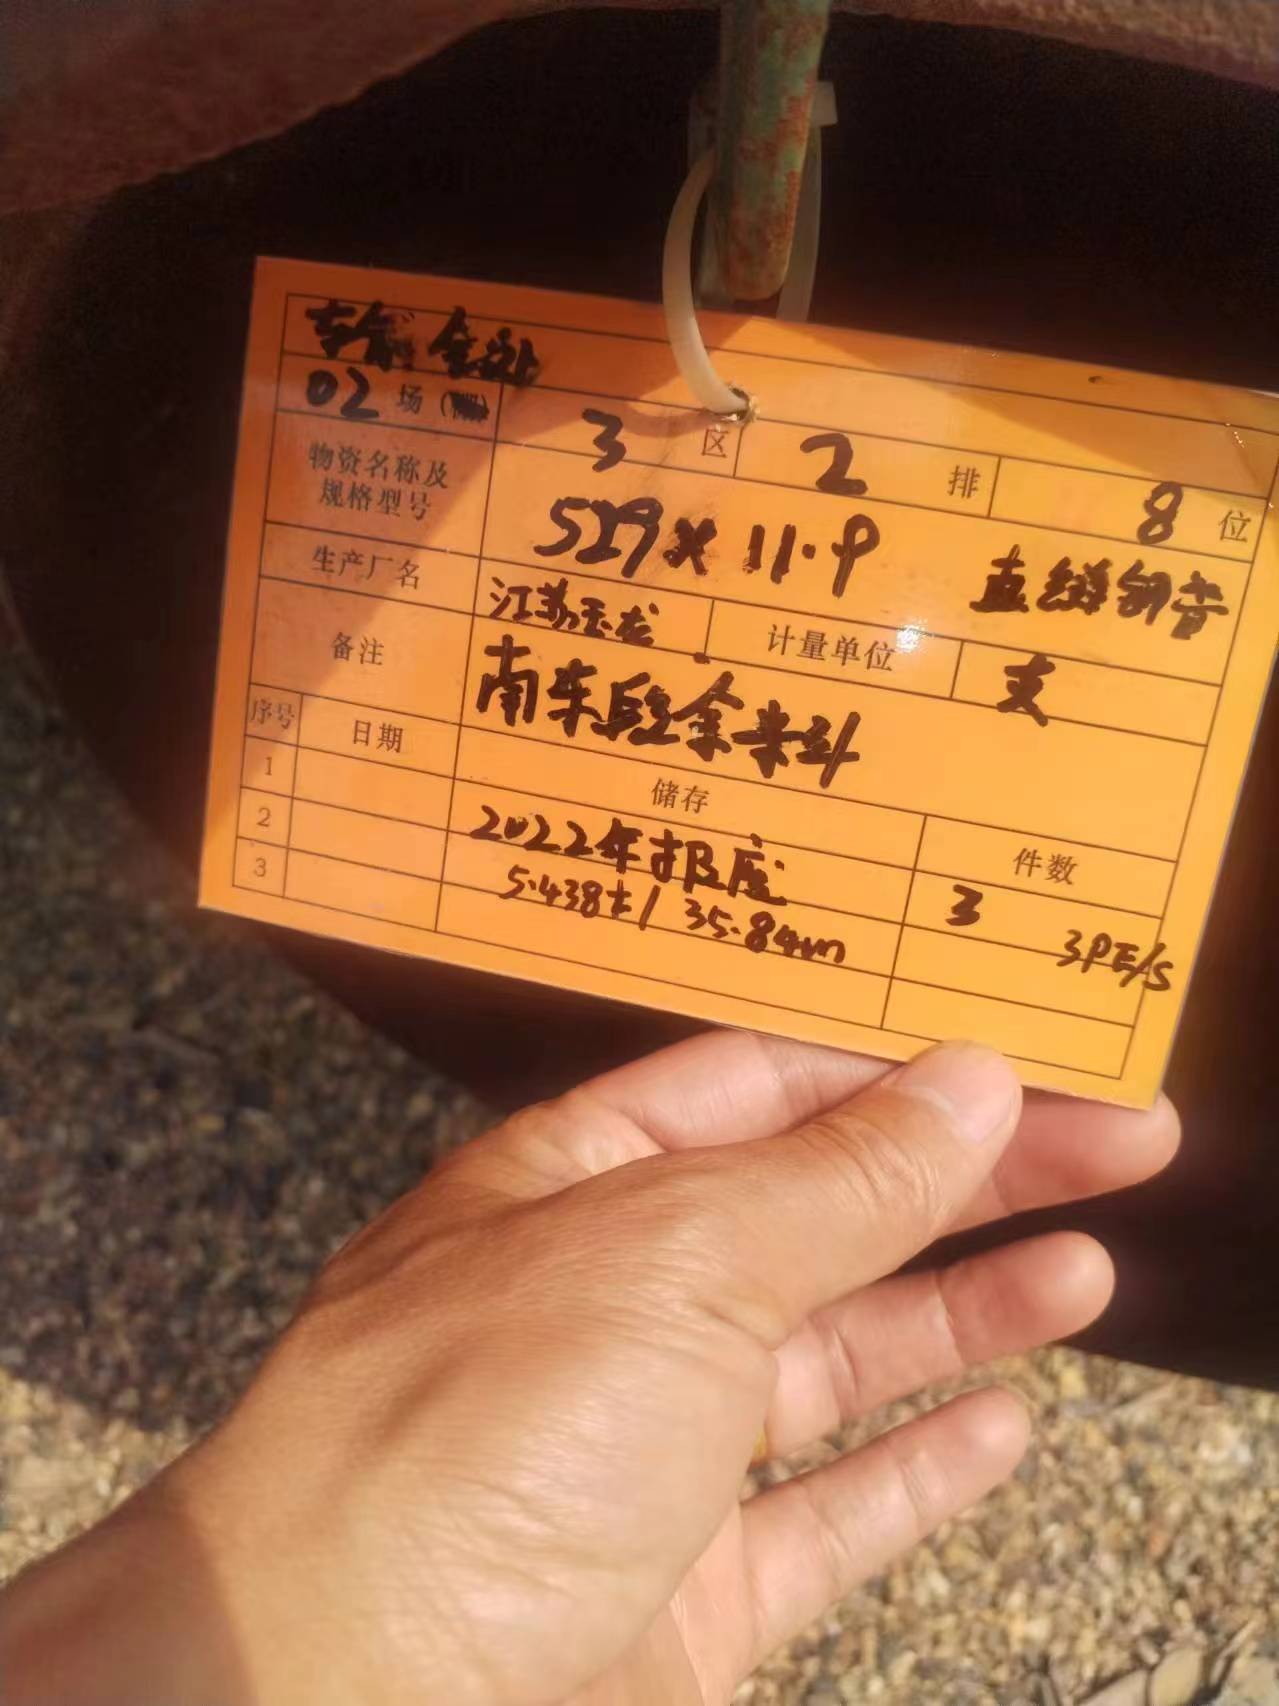 02 场
3 区 2 排 8 位
物资名称及
规格型号
529×11.9 直缝钢管
生产厂名 江苏玉龙 计量单位 支
备注 南东段余来料
序号 日期 储存 件数
1 2022年报废 3 3PE/S
2 5.438t/ 35.84m
3